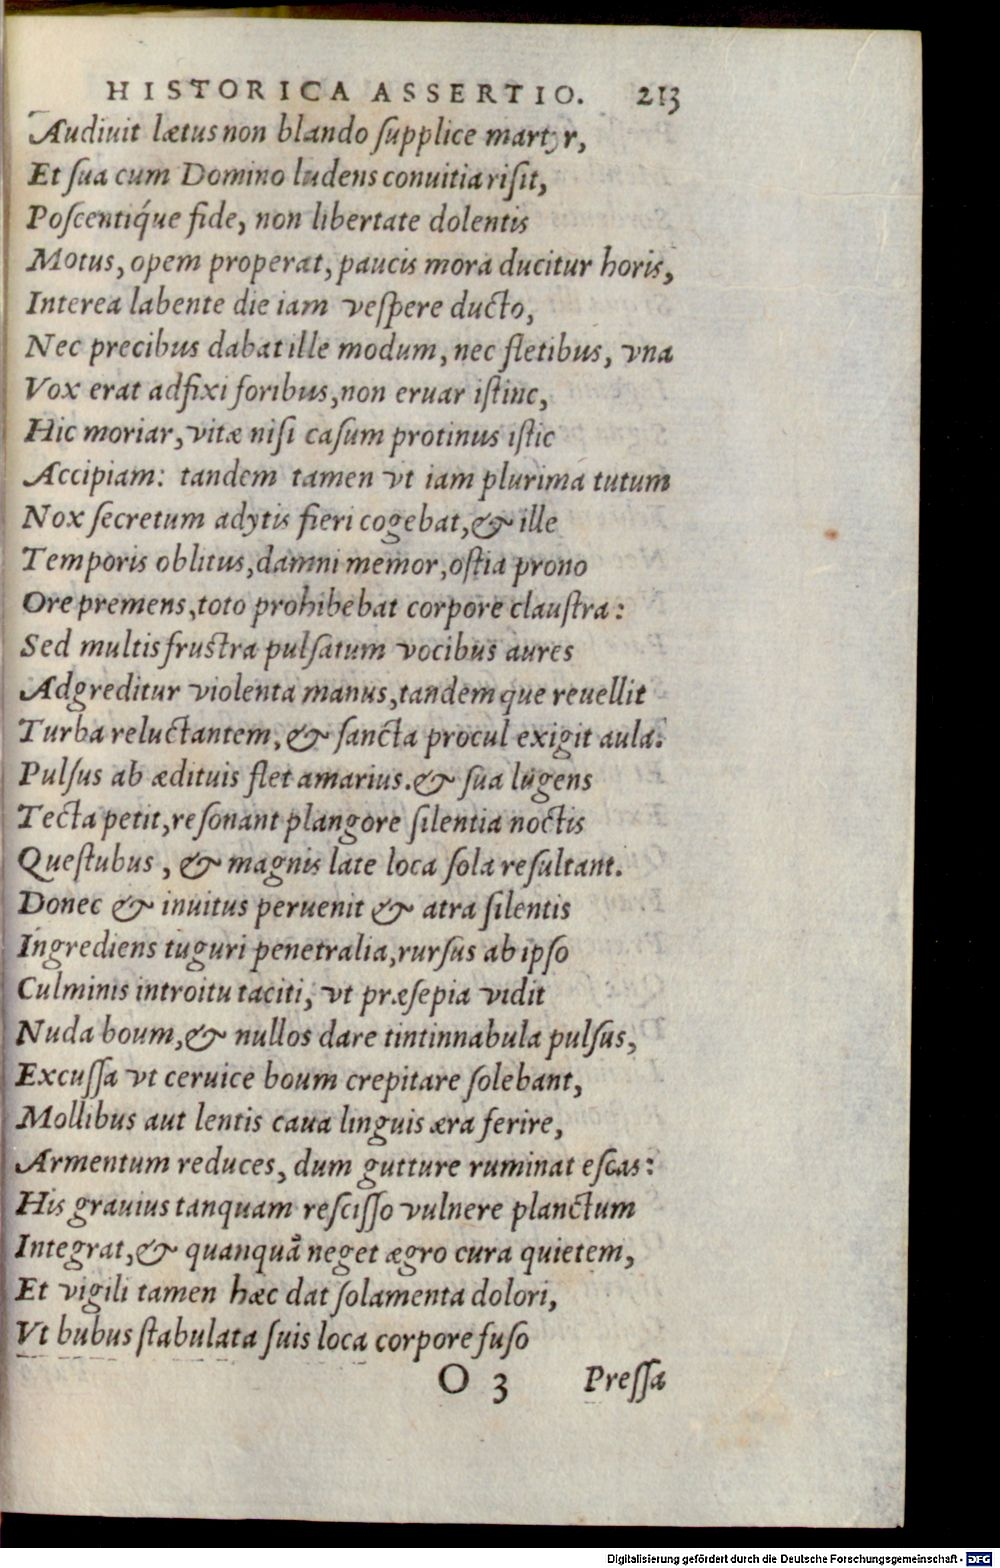 HISTORICA ASSERTIO. 213
Audiuit lætus non blando ſupplice martyr,
Et ſua cum Domino ludens conuitia riſit,
Poſcentiq́ue fide, non libertate dolentis
Motus, opem properat, paucis mora ducitur horis,
Interea labente die iam veſpere ducto,
Nec precibus dabat ille modum, nec fletibus, vna
Vox erat adfixi foribus, non eruar iſtinc,
Hic moriar, vitæ niſi caſum protinus iſtic
Accipiam: tandem tamen vt iam plurima tutum
Nox ſecretum adytis fieri cogebat, & ille
Temporis oblitus, damni memor, oſtia prono
Ore premens, toto prohibebat corpore clauſtra:
Sed multis fruſtra pulſatum vocibus aures
Adgreditur violenta manus, tandem que reuellit
Turba reluctantem, & ſancta procul exigit aula.
Pulſus ab ædituis flet amarius. & ſua lugens
Tecta petit, reſonant plangore ſilentia noctis
Queſtubus, & magnis late loca ſola reſultant.
Donec & inuitus peruenit & atra ſilentis
Ingrediens tuguri penetralia, rurſus ab ipſo
Culminis introitu taciti, vt præſepia vidit
Nuda boum, & nullos dare tintinnabula pulſus,
Excuſſa vt ceruice boum crepitare ſolebant,
Mollibus aut lentis caua linguis æra ferire,
Armentum reduces, dum gutture ruminat eſcas:
His grauius tanquam reſciſſo vulnere planctum
Integrat, & quanquã neget ægro cura quietem,
Et vigili tamen hæc dat ſolamenta dolori,
Vt bubus ſtabulata ſuis loca corpore fuſo
O 3 Preſſa
Digitalisierung gefördert durch die Deutsche Forschungsgemeinschaft - DFG